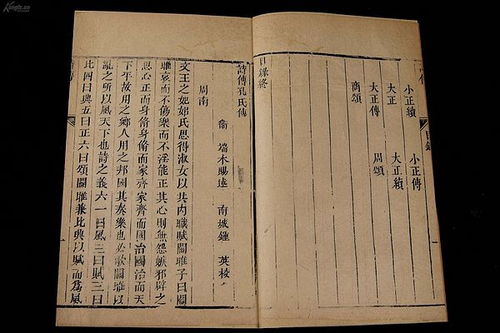 Kongfz.cn
目錄
小正續 小正傳
大正 大正續
大正傳 周頌
商頌
目錄終
詩傳孔氏傳
衞 端木賜述 南城鍾 英校
周南
文王之妃姒氏思得淑女以共內職賦關雎子曰關
雎哀而不傷樂而不淫能正其心則無怨嫉邪辟之
思心正而身脩身脩而家齊家齊而國治國治而天
下平故用之鄉人用之邦國其奏樂也必歌關雎以
亂之所以風天下也詩之義六一曰風二曰賦三曰
比四曰興五曰正六曰頌關雎兼比興以賦而爲風